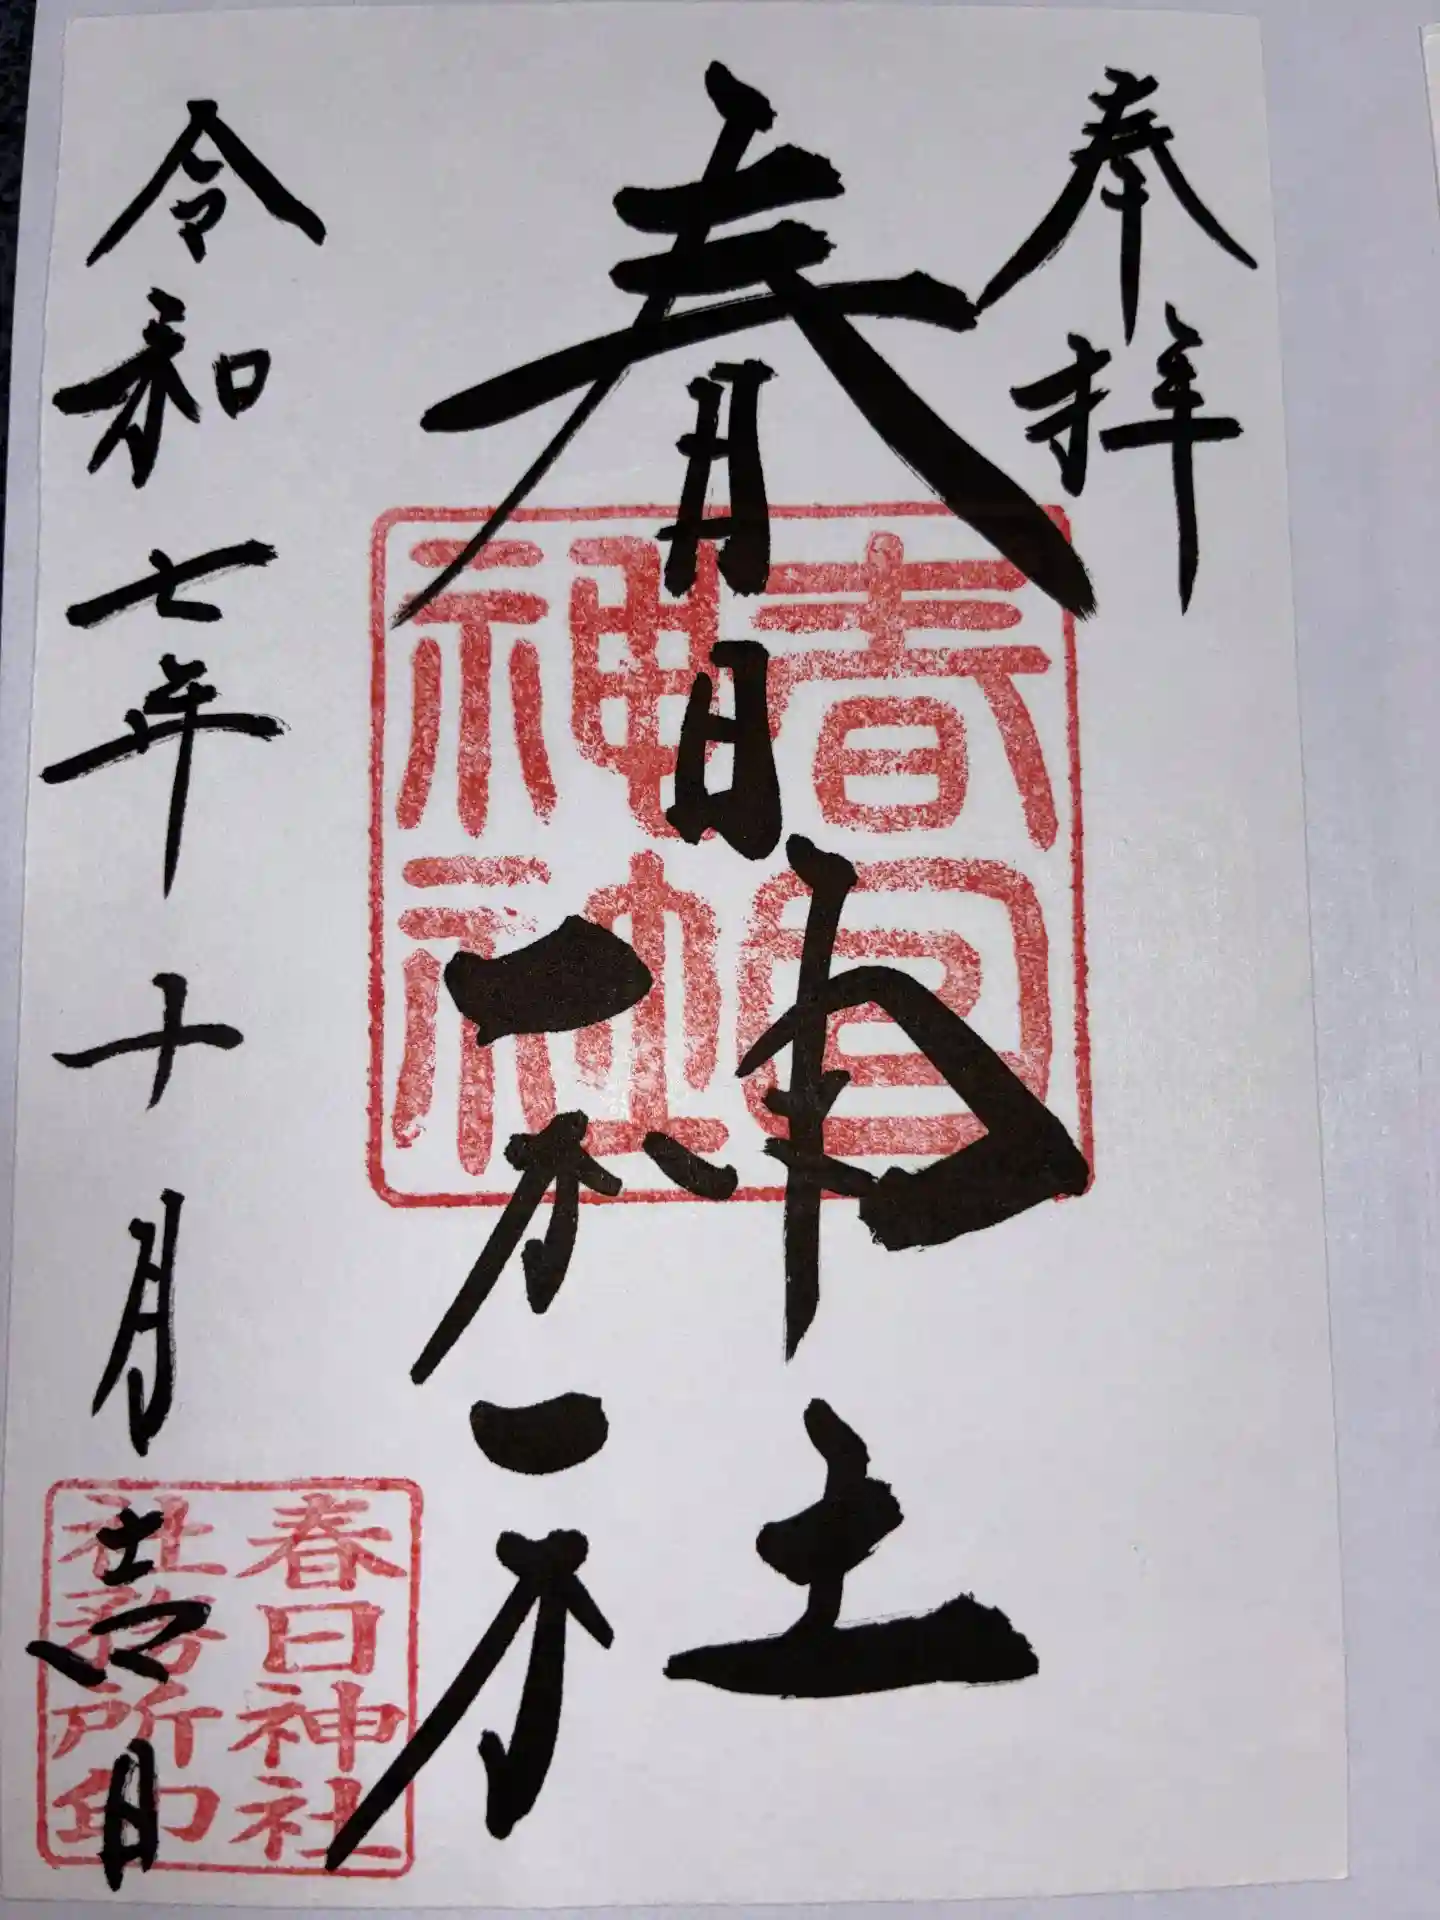 奉拝
春日神社
春日
神社
令和七年十月 日
春日神社
社務所印